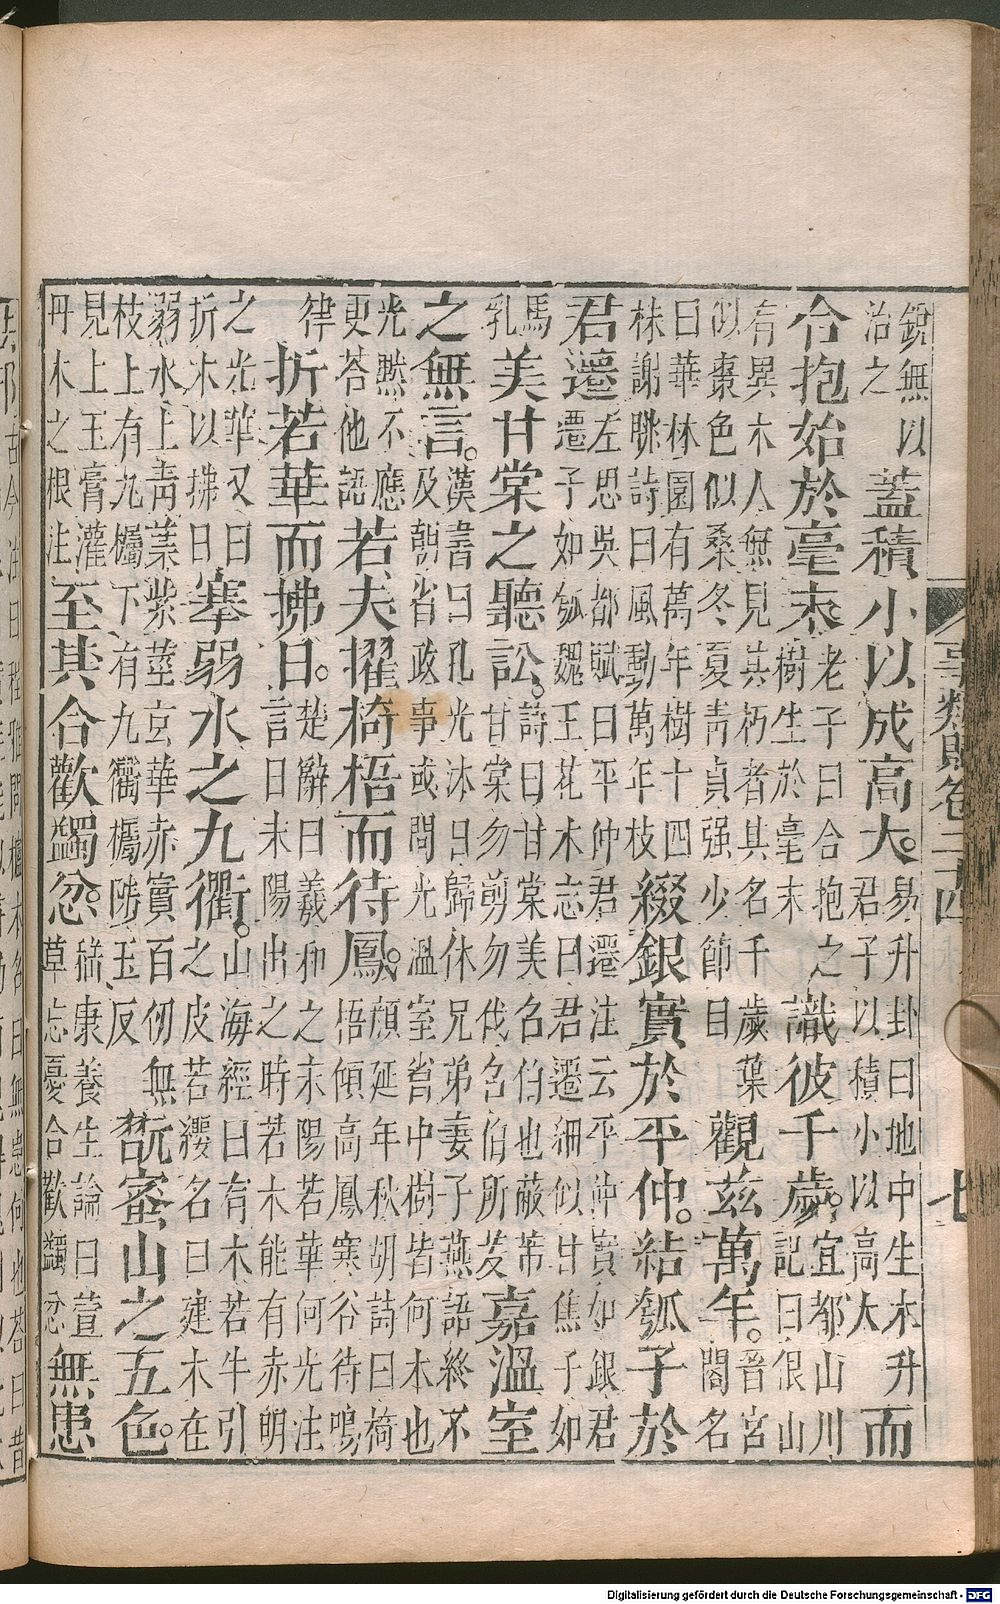 銳無以
治之
蓋積小以成高大。
易升卦曰地中生木升
君子以積小以高大
而
合抱始於毫末
老子曰合抱之
樹生於毫末
識彼千歲。
宜都山川
記曰佷山
有異木人無見其朽者其名千歲葉
似棗色似桑冬夏青貞强少節目
觀茲萬年。
晉宮
閣名
曰華林園有萬年樹十四
株謝脁詩曰風動萬年枝
綴銀實於平仲。結瓠子於
君遷
左思吳都賦曰平仲君遷注云平仲實如銀君
遷子如瓠魏王花木志曰君遷細似甘焦子如
馬
乳
美甘棠之聽訟。
詩曰甘棠美名伯也蔽芾
甘棠勿剪勿伐名伯所茇
嘉溫室
之無言。
漢書曰孔光沐日歸休兄弟妻子燕語終不
及朝省政事或問光溫室省中樹皆何木也
光黙不應
更荅他語
若夫擢椅梧而待鳳。
顔延年秋胡詩曰椅
梧傾高鳳寒谷待鳴
律
折若華而拂日。
楚辭曰羲和之未陽若華何光注
言日未陽出之時若木能有赤明
之光華又曰
折木以拂日
塞弱水之九衢。
山海經曰有木若牛引
之皮若纓名曰建木在
弱水上青葉紫莖玄華赤實百仞無
枝上有九欘下有九衢欘陟玉反
翫密山之五色。
見上玉膏灌
丹木之根注
至其合歡蠲忿。
嵇康養生論曰萱
草忘憂合歡蠲忿
無患
事類賦卷二十四
七
Digitalisierung gefördert durch die Deutsche Forschungsgemeinschaft - DFG